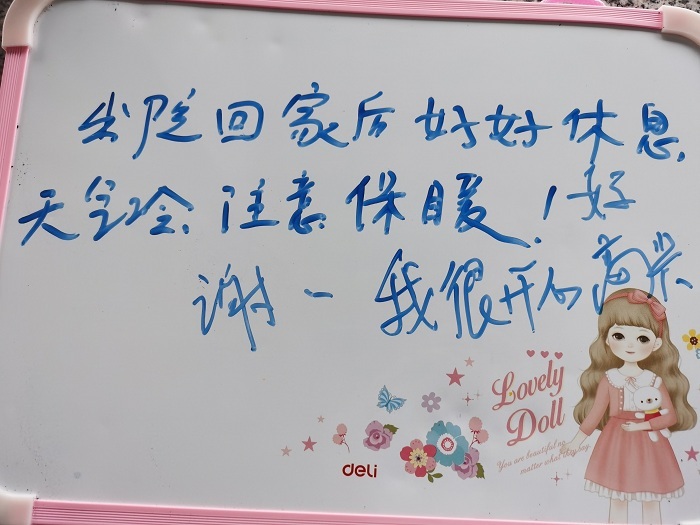 出院回家后好好休息,
天气冷.注意保暖!好
谢一我很开心高兴
Lovely
Doll
You are beautiful no
matter what they say
deli